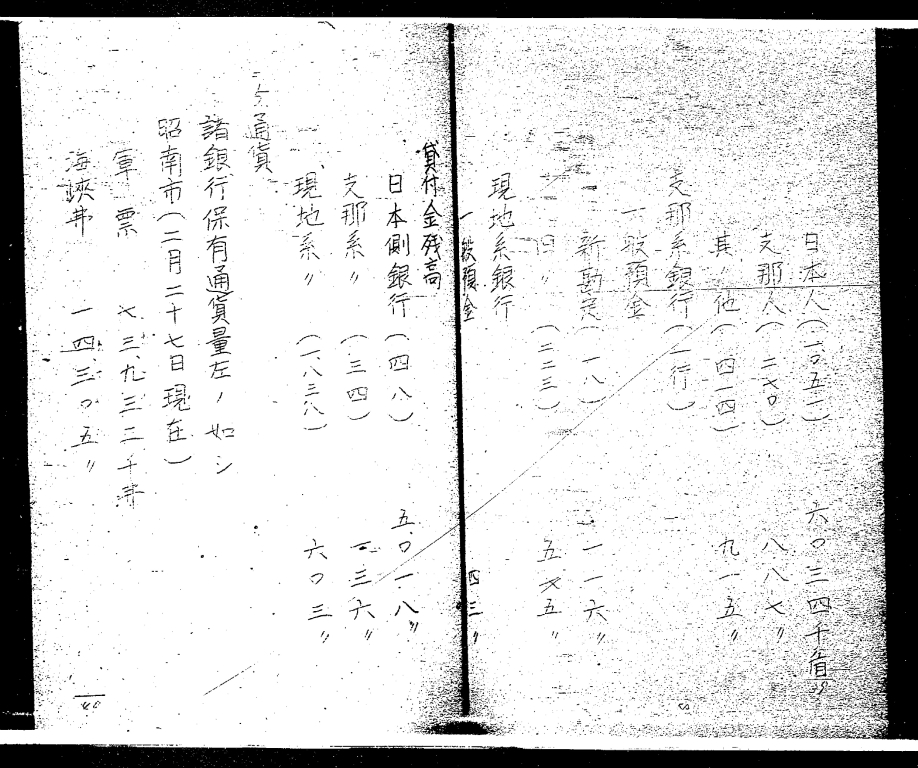 日本人(一〇五一) 六〇三四千盾
支那人(二七〇) 八八七〃
其ノ他(四一四) 九一五〃
支那系銀行(一行)
一般預金
新勘定(一八) 一一六〃
旧〃(二二三) 五七五〃
現地系銀行
一般預金 四三〃
貸付金残高
日本側銀行(四八) 五〇一八〃
支那系〃(三四) 一三六〃
現地系〃(一八三八) 六〇三〃
通貨
諸銀行保有通貨量左ノ如シ
昭南市(二月二十七日現在)
軍票 七三、九三二千弗
海峡弗 一四、三〇五〃